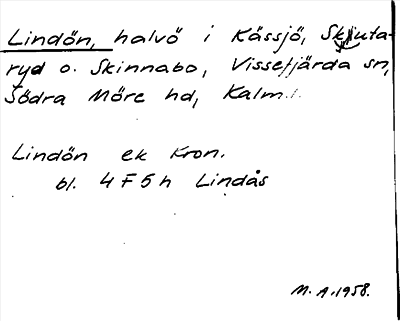 Lindön, halvö i Kässjö, Skjuta-
ryd o. Skinnabo, Vissefjärda sn,
Södra Möre hd, Kalm.
Lindön ek Kron.
bl. 4F5h Lindås
M.A. 1958.